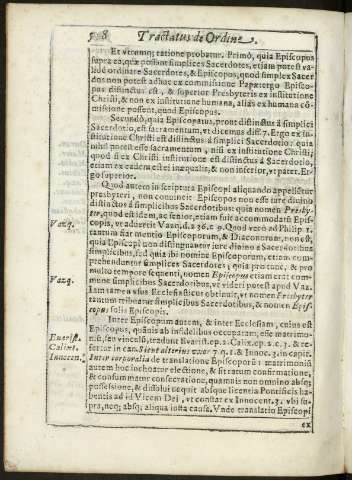 508 Tractatus de Ordine.
Et vtrumq; ratione probatur. Primò, quia Episcopus
supra ea, quæ possunt simplices Sacerdotes, etiam potest va-
lidè ordinare Sacerdotes, & Episcopos, quod simplex Sacer
dos non potest adhuc ex commissione Papæ: ergo Episco-
pus distinctus est, & superior Presbyteris ex institutione
Christi, & non ex institutione humana, aliàs ex humana cõ-
missione possent, quod Episcopus.
Secundò, quia Episcopatus, prout distinctus à simplici
Sacerdotio, est sacramentum, vt dicemus diff. 7. Ergo ex in-
stitutione Christi est distinctus à simplici Sacerdotio: quia
nihil potest esse sacramentum, nisi ex institutione Christi;
quod si ex Christi institutione est distinctus à Sacerdotio,
etiam ex eadem est ei inæqualis; & non inferior, vt patet. Er-
go superior.
Quod autem in scriptura Episcopi aliquando appellentur
presbyteri, non conuincit Episcopos non esse iure diuino
distinctos à simplicibus Sacerdotibus: quia nomen Presby-
ter, quod est idem, ac senior, etiam fuit accommodatum Epis-
Vazq. copis, vt aduertit Vazq. d. 236. c. 9. Quod verò ad Philip. 1.
tantum fiat mentio Episcoporum, & Diaconorum, non est,
quia Episcopi non distinguantur iure diuino à Sacerdotibus
simplicibus, sed quia ibi nomine Episcoporum, etiam com-
prehenduntur simplices Sacerdotes; quia pro tunc, & pro
multo tempore sequenti, nomen Episcopus etiam erat com-
Vazq. mune simplicibus Sacerdotibus, vt videri potest apud Vaz.
Iam tamen vsus Ecclesiasticus obtinuit, vt nomen Presbyter
tantum tribuatur simplicibus Sacerdotibus, & nomen Epis-
copus solis Episcopis.
Inter Episcopum autem, & inter Ecclesiam, cuius est
Episcopus, quãuis ab infidelibus occupatam, esse matrimo-
Euarist. niũ, seu vinculũ, tradunt Euarist. ep. 2. Calix. ep. 2. c. 3. & re-
Calixt. fertur in can. Sicut alterius vxor 7. q. 1. & Innoc. 3. in capit.
Innocen. Inter corporalia de translatione Episcoporũ: matrimoniũ
autem hoc inchoatur electione, & fit ratum confirmatione,
& consummatur consecratione, quamuis non omnino absq;
possessione, & dissolui nequit absque licentia Pontificis ha-
bentis ad id Vicem Dei, vt constat ex Innocent. 3. vbi su-
pra, nec; absq; aliqua iusta causa. Vnde translatio Episcopi
ex